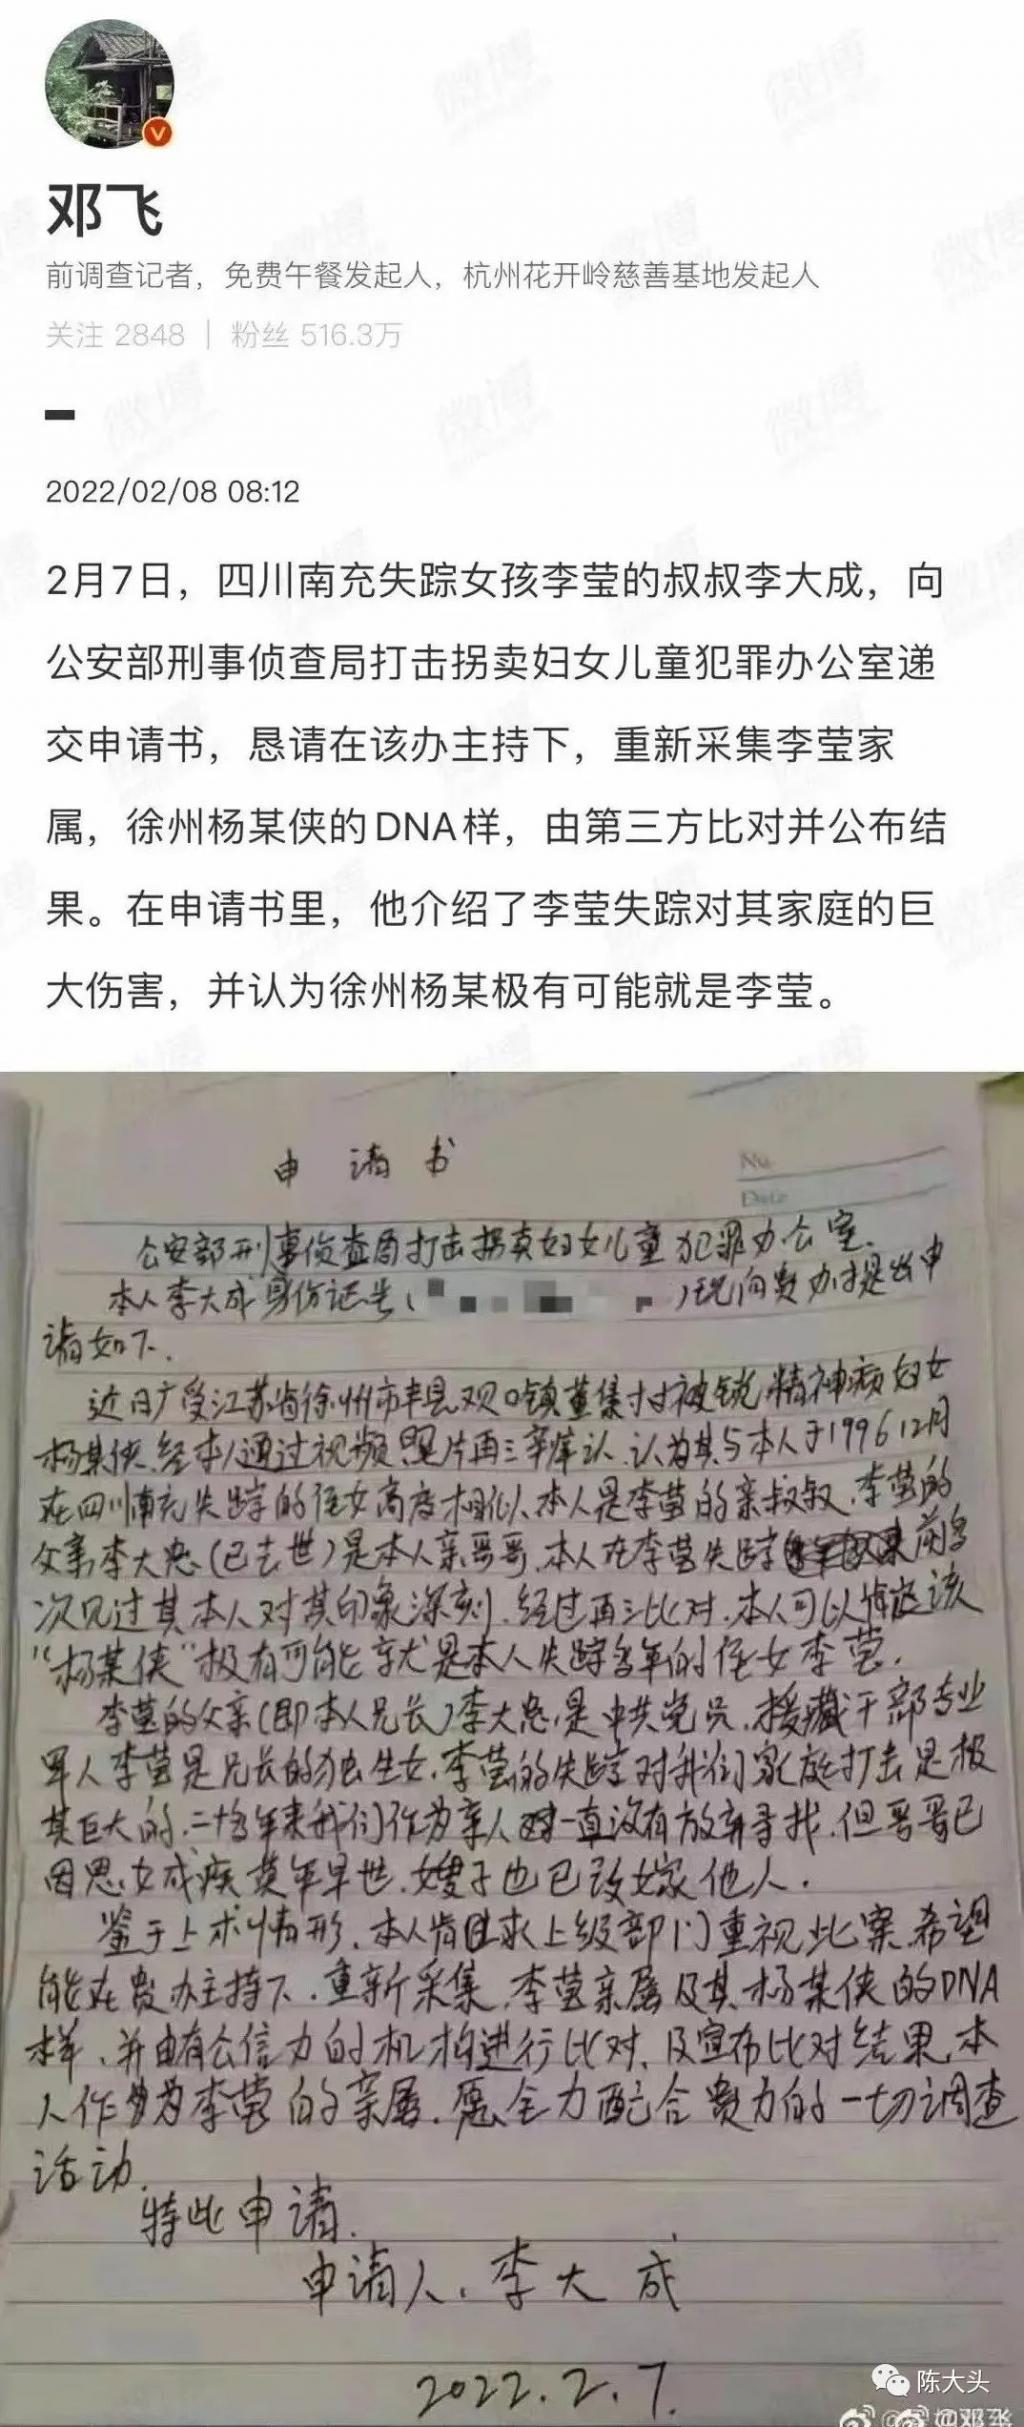 邓飞
前调查记者，免费午餐发起人，杭州花开岭慈善基地发起人
关注 2848 | 粉丝 516.3万
2022/02/08 08:12
2月7日，四川南充失踪女孩李莹的叔叔李大成，向
公安部刑事侦查局打击拐卖妇女儿童犯罪办公室递
交申请书，恳请在该办主持下，重新采集李莹家
属，徐州杨某侠的DNA样，由第三方比对并公布结
果。在申请书里，他介绍了李莹失踪对其家庭的巨
大伤害，并认为徐州杨某极有可能就是李莹。
申请书
No.
Date
公安部刑事侦查局打击拐卖妇女儿童犯罪办公室、
本人李大成身份证号( )现向贵办提出申
请如下.
近日广受江苏省徐州市丰县欢口镇董集村被锁精神病妇女
杨某侠.经本人通过视频照片再三辨认.认为其与本人于1996 12月
在四川南充失踪的侄女高度相似.本人是李莹的亲叔叔.李莹的
父亲李大忠(已去世)是本人亲哥哥.本人在李莹失踪前多
次见过其本人对其印象深刻.经过再三比对.本人可以肯定该
"杨某侠"极有可能就是本人失踪多年的侄女李莹.
李莹的父亲(即本人兄长)李大忠是中共党员.援藏干部专业
军人李莹是兄长的独生女.李莹的失踪对我们家庭打击是极
其巨大的.二十多年来我们作为亲人一直没有放弃寻找.但哥哥已
因思女成疾英年早世.嫂子也已改嫁他人.
鉴于上术情形.本人肯且求上级部门重视此案.希望
能在贵办主持下.重新采集.李莹亲属及其杨某侠的DNA
样、并由有公信力的机构进行比对、及宣布比对结果.本
人作为李莹的亲属.愿全力配合贵办的一切调查
活动.
特此申请.
申请人.李大成
2022.2.7.
陈大头
@邓飞